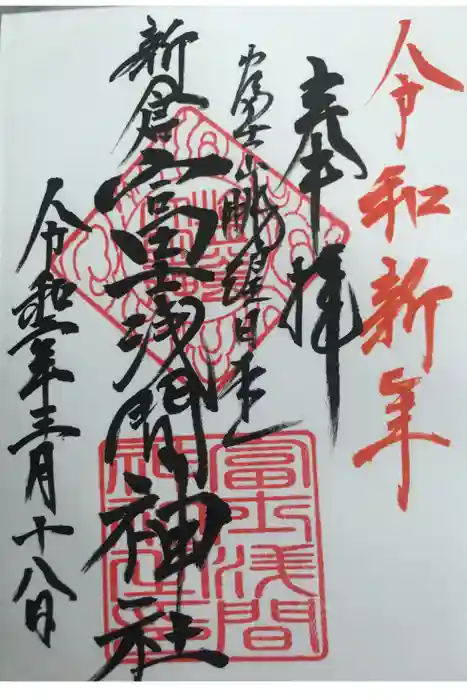 令和新年
奉拝
富士山眺望日本一
新倉富士浅間神社
令和二年三月十八日
富士浅間